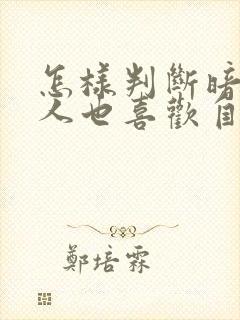 怎樣判斷暗
人也喜歡
鄭培霖